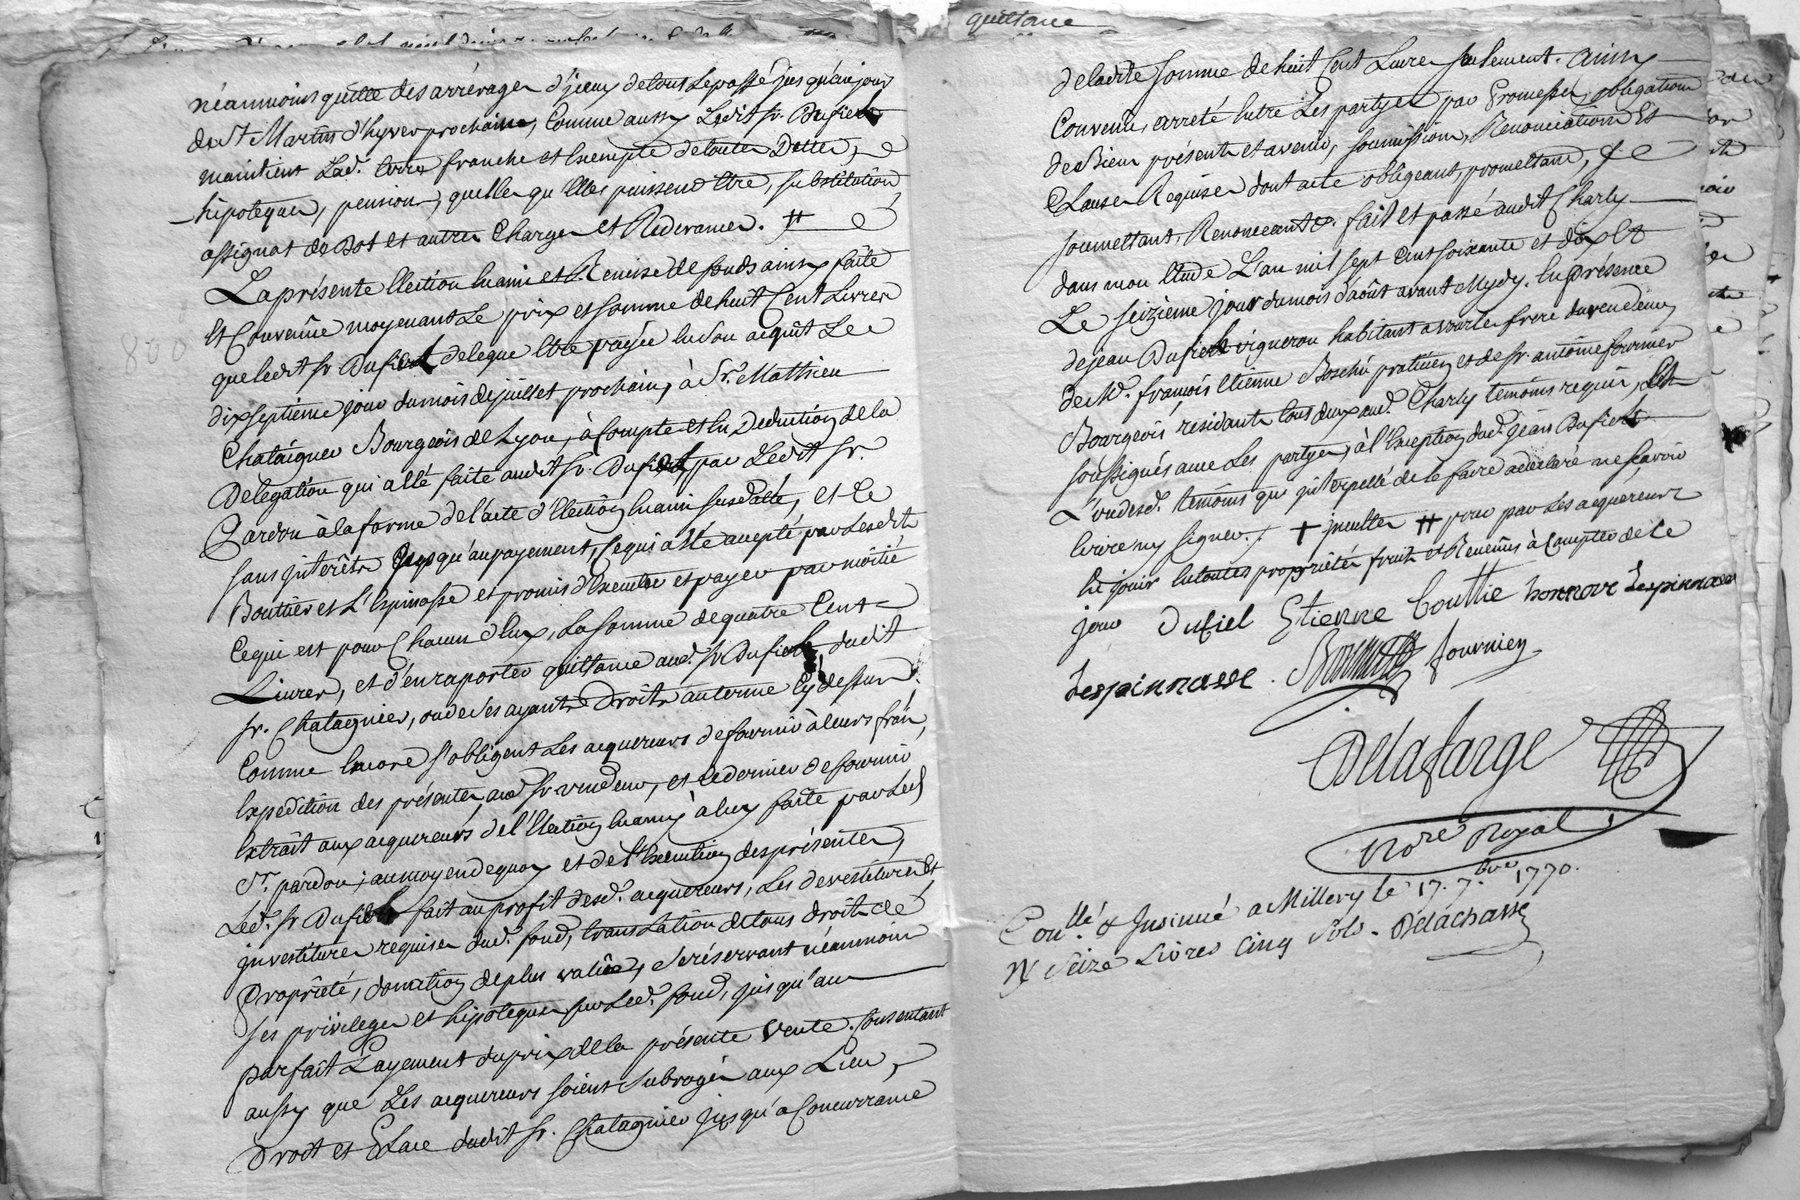 quittance
néanmoins quitte des arrérages d'jceux de tous le passé jusqu'au jour
de St Martin d'hyver prochain, Comme aussy Ledit Sr. Dufiel
maintient Lad. terre franche et Exempte de toutes Dettes,
hipoteques, pension, quelles qu'Elles puissent Etre, substitution
assignat de Dot et autres Charges et Redevances. ++
La présente Election En ami et Remise de fonds ainsy faite
Et Convenüe moyenant Le prix et somme de huit Cent Livres
800
que ledit Sr Dufiel delegue Etre payée En son acquit Le
dix septième jour du mois de juillet prochain, à Sr. Mathieu
Chataigner Bourgeois de Lyon, à Compte et En Deduction de la
Delegation qui a été faite audit Sr. Dufiel par Ledit Sr.
Pardon à la forme de l'acte d'Election En ami susdatté, et Ce
sans jnterêts jusqu'au payement, Ce qui a été accepté par Lesdits
Bouttier et L'Espinasse et promis d'Executer et payer par moitié
Ce qui est pour Chacun d'Eux, La somme de quatre Cent
Livres, et d'En raporter quittance aud. Sr Dufiel dudit
Sr. Chatagnier, ou de ses ayants Droits au terme Cy dessus.
Comme Encore s'obligent Les acquereurs de fournir à leurs frais
Expedition des présentes aud Sr vendeur, et Ce dernier de fournir
Extrait aux acquereurs de l'Election En amy à luy faite par Led
Sr. pardon; au moyen de quoy et de l'Execution des présentes,
Led. Sr Dufiel fait au profit desd. acquereurs, Les devestitures Et
jnvestitures requises dud. fond, translation de tous droits de
Propriété, donation de plus value, se réservant néanmoins
ses privileges et hipoteques sur Led. fond, jusqu'au
parfait Payement du prix de la présente vente. Consentant
aussy que Les acquereurs soient subrogés aux Lieu,
Droit et Place dudit Sr. Chatagnier jusqu'a Concurrance
de ladite somme de huit Cent Livres seulement. ainsy
Convenu, arrété Entre Les partyes par Promesses, obligation
de Biens présents et avenir, soumissions, Renonciations Et
Clauses Requises dont acte obligeant, promettant,
soumettant, Renonceant &. fait et passé audit Charly
dans mon Etude L'an mil sept Cent soixante et dix Et
Le seizième jour du mois d'août avant Mydy. En présence
de jean Dufiel vigneron habitant a vourles frere du vendeur
de Me. françois Etienne Boschü praticien et de Sr. antoine fournier
Bourgeois résidants tous deux aud. Charly temoins requis, Et
soussignés avec Les partyes, à l'Exception dud. jean Dufiel
L'un desd. temoins qui jnterpellé de le faire a declaré ne sçavoir
Ecrire ny signer. + jncultes ++ pour par Les acquereurs
En jouir En toutes propriétés fruits et Revenus à Compter de Ce
jour Dufiel Etienne bouttie honnore Lespinnasse
Lespinnasse. Boschü fournier
Delafarge
Nore Royal
Conllé & Jnsinué a Millery le 17. 7.bre 1770.
R seize Livres cinq sols. Delachasse